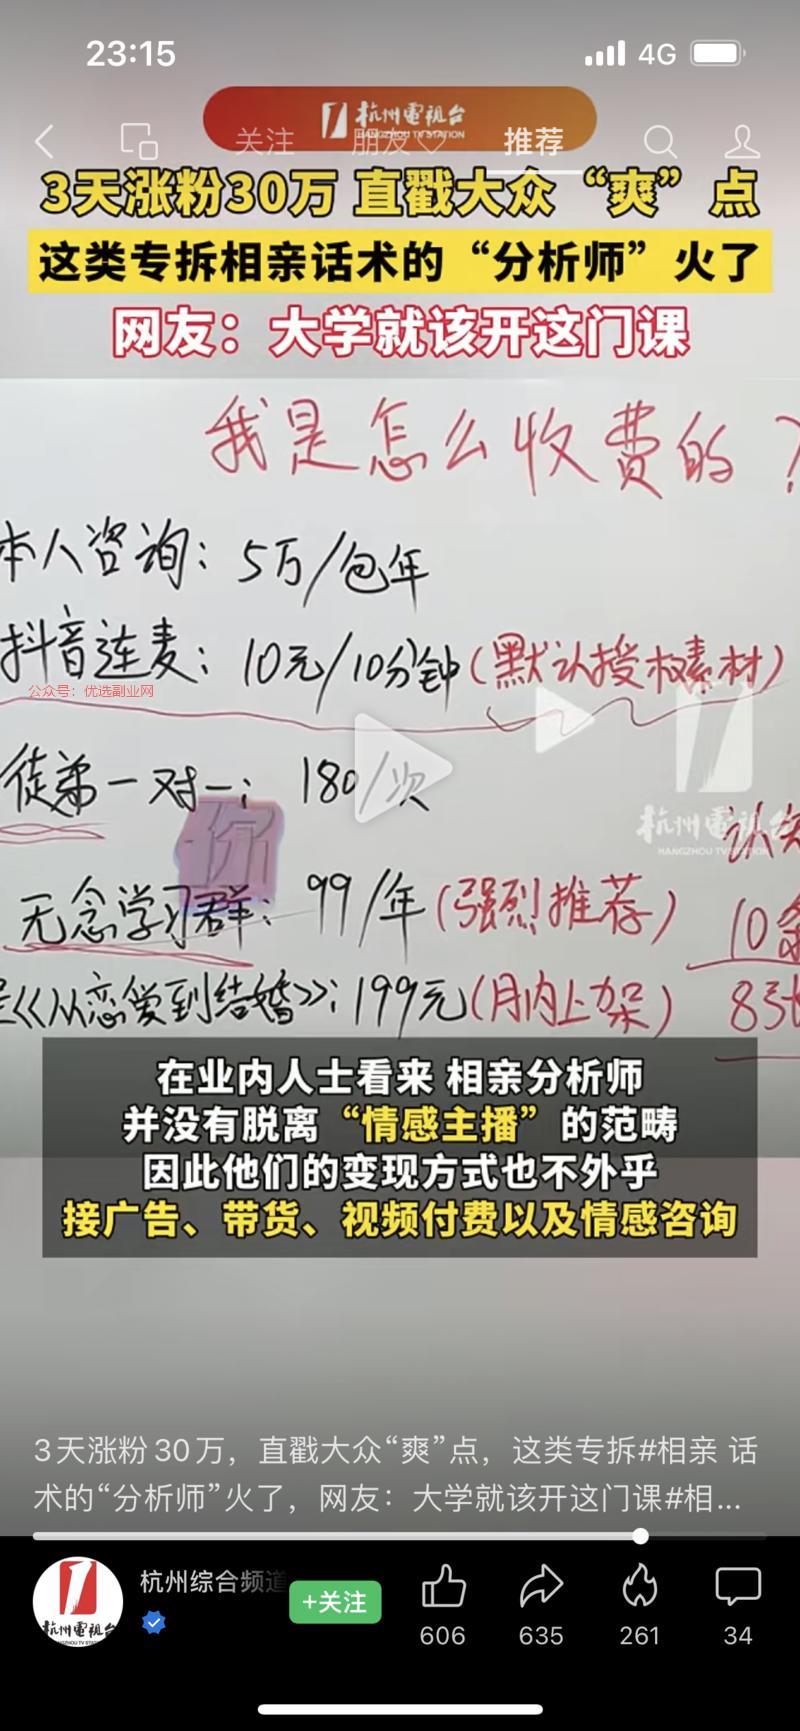 23:15
4G
杭州電視台
HANGZHOU TV STATION
关注
朋友♡
推荐
3天涨粉30万 直戳大众“爽”点
这类专拆相亲话术的“分析师”火了
网友：大学就该开这门课
我是怎么收费的？
本人咨询：5万/包年
抖音连麦：10元/10分钟(默认授权素材)
公众号：优选副业网
徒弟一对一：180/次
杭州電視台
HANGZHOU TV STATION
你
无念学习群：99/年(强烈推荐)
10条
《从恋爱到结婚》：199元(月内上架)
8张
在业内人士看来 相亲分析师
并没有脱离“情感主播”的范畴
因此他们的变现方式也不外乎
接广告、带货、视频付费以及情感咨询
3天涨粉30万，直戳大众“爽”点，这类专拆#相亲 话
术的“分析师”火了，网友：大学就该开这门课#相...
杭州電視台
杭州综合频道
+关注
606
635
261
34